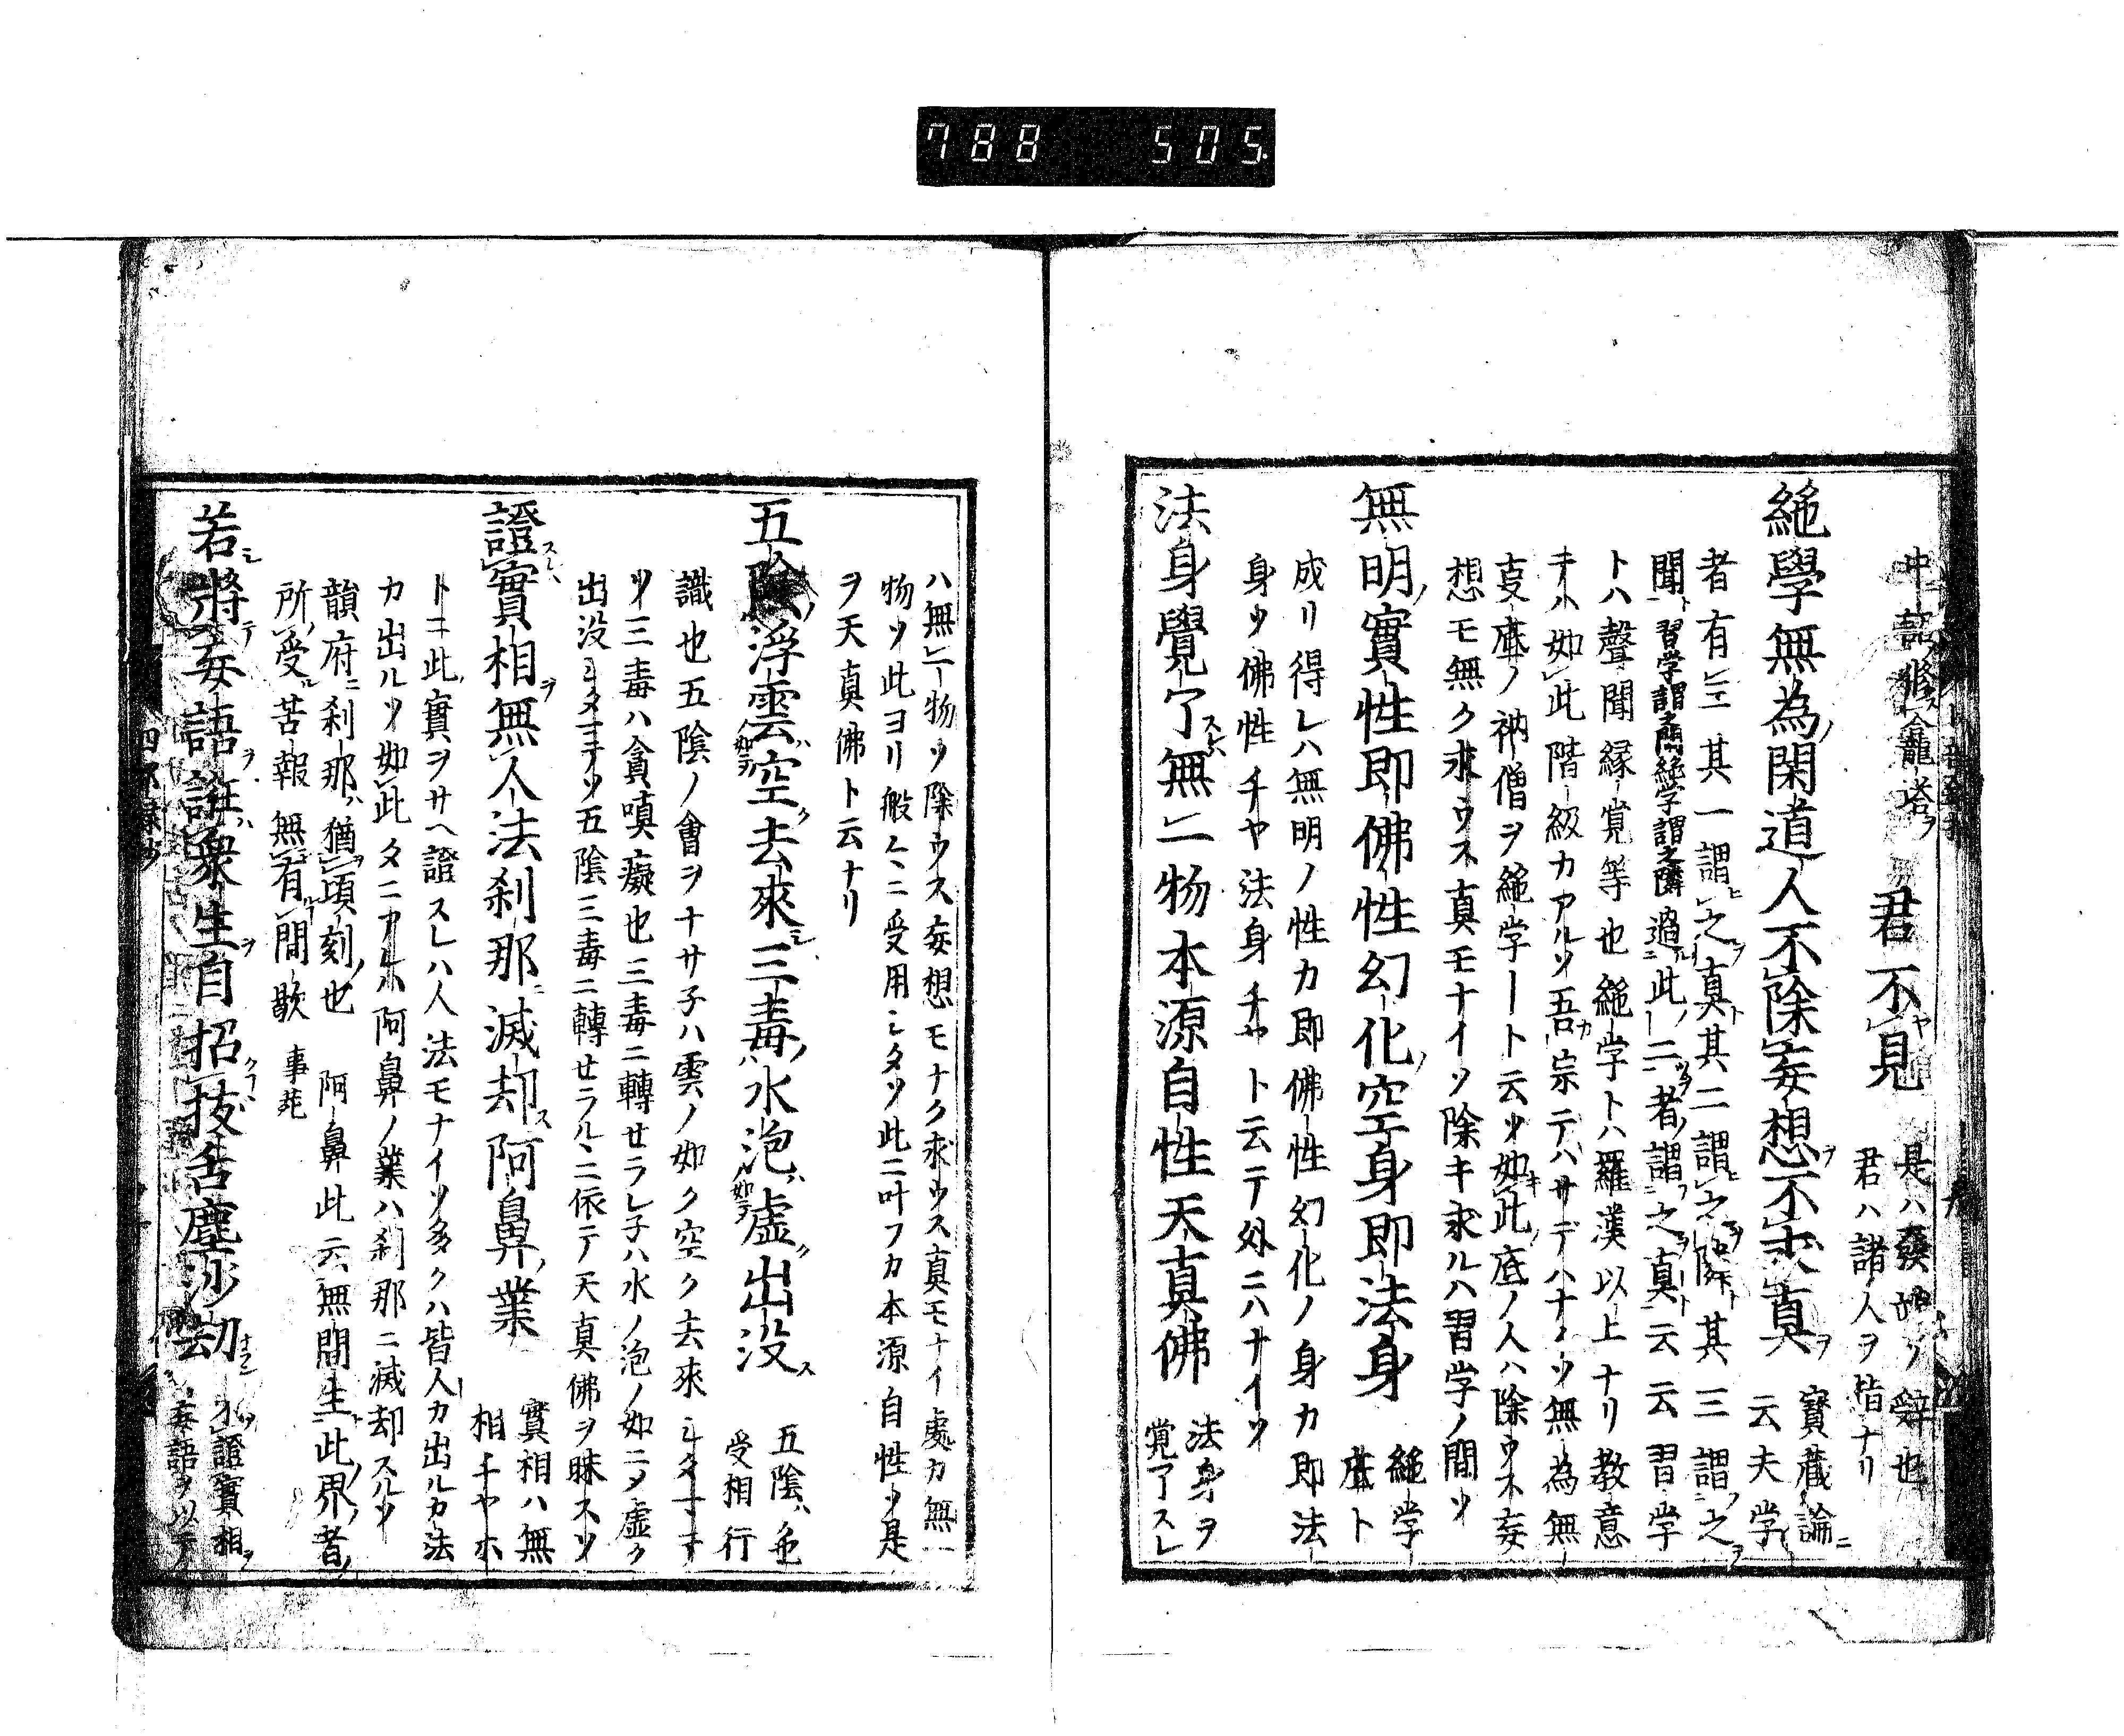 788 505.
中 詔修龕塔 君不見 是ハ發端ノ辭也
君ハ諸人ヲ指ナリ
絶學無為閑道人不除妄想不求真 寳藏論ニ
云夫学
者有三其一謂之真其二謂之隣其三謂之
聞習学謂之聞絶学謂之隣過此二者謂之真云云習学
トハ聲聞縁覚等也絶学トハ羅漢以上ナリ教意
此階級カアルソ吾宗テハサデハナソ無為無
㕝底ノ衲僧ヲ絶学ート云ソ如此底ノ人ハ除ウス妄
想モ無ク求ウス真モナイソ除キ求ルハ習学ノ間ソ
無明實性即佛性幻化空身即法身 絶学
底ト
成リ得レハ無明ノ性カ即佛性幻化ノ身カ即法
身ソ佛性チヤ法身チヤト云テ外ニハナイソ
法身覺了無一物本源自性天真佛 法身ヲ
覚了スレ
ハ無一物ソ除ウス妄想モナク求ウス真モナイ處カ無一
物ソ此ヨリ般々ニ受用シタソ此ニ叶フカ本源自性ソ是
ヲ天真佛ト云ナリ
五陰浮雲空去來三毒水泡虚出没 五陰ハ色
受相行
識也五陰ノ會ヲナサ子ハ雲ノ如ク空ク去來
ソ三毒ハ貪嗔癡也三毒ニ轉セラレ子ハ水ノ泡ノ如ニメ虚ク
出没 五陰三毒ニ轉セラルヽニ依テ天真佛ヲ昧スソ
證實相無人法刹那滅却阿鼻業 實相ハ無
相チヤホ
トニ此實ヲサヘ證スレハ人法モナイソ多クハ皆人カ出ルカ法
カ出ルソ如此タニアレハ阿鼻ノ業ハ刹那ニ滅却スルソ
韻府ニ刹那ハ猶頃刻也 阿鼻此云無間生此界者
所受苦報無有間歇 事苑
若將妄語誑衆生自招拔舌塵沙劫 證實相ヲ
妄語ヲ以テ